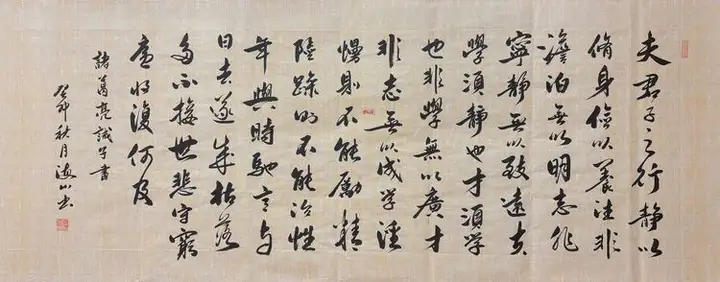 夫君子之行静以
脩身儉以養德非
澹泊無以明志非
寧静無以致遠夫
學須静也才須學
也非學無以廣才
非志無以成學淫
慢則不能勵精
險躁則不能冶性
年與時馳意与
日去遂成枯落
多不接世悲守窮
廬将復何及
諸葛亮誡子書
癸卯秋月海山书